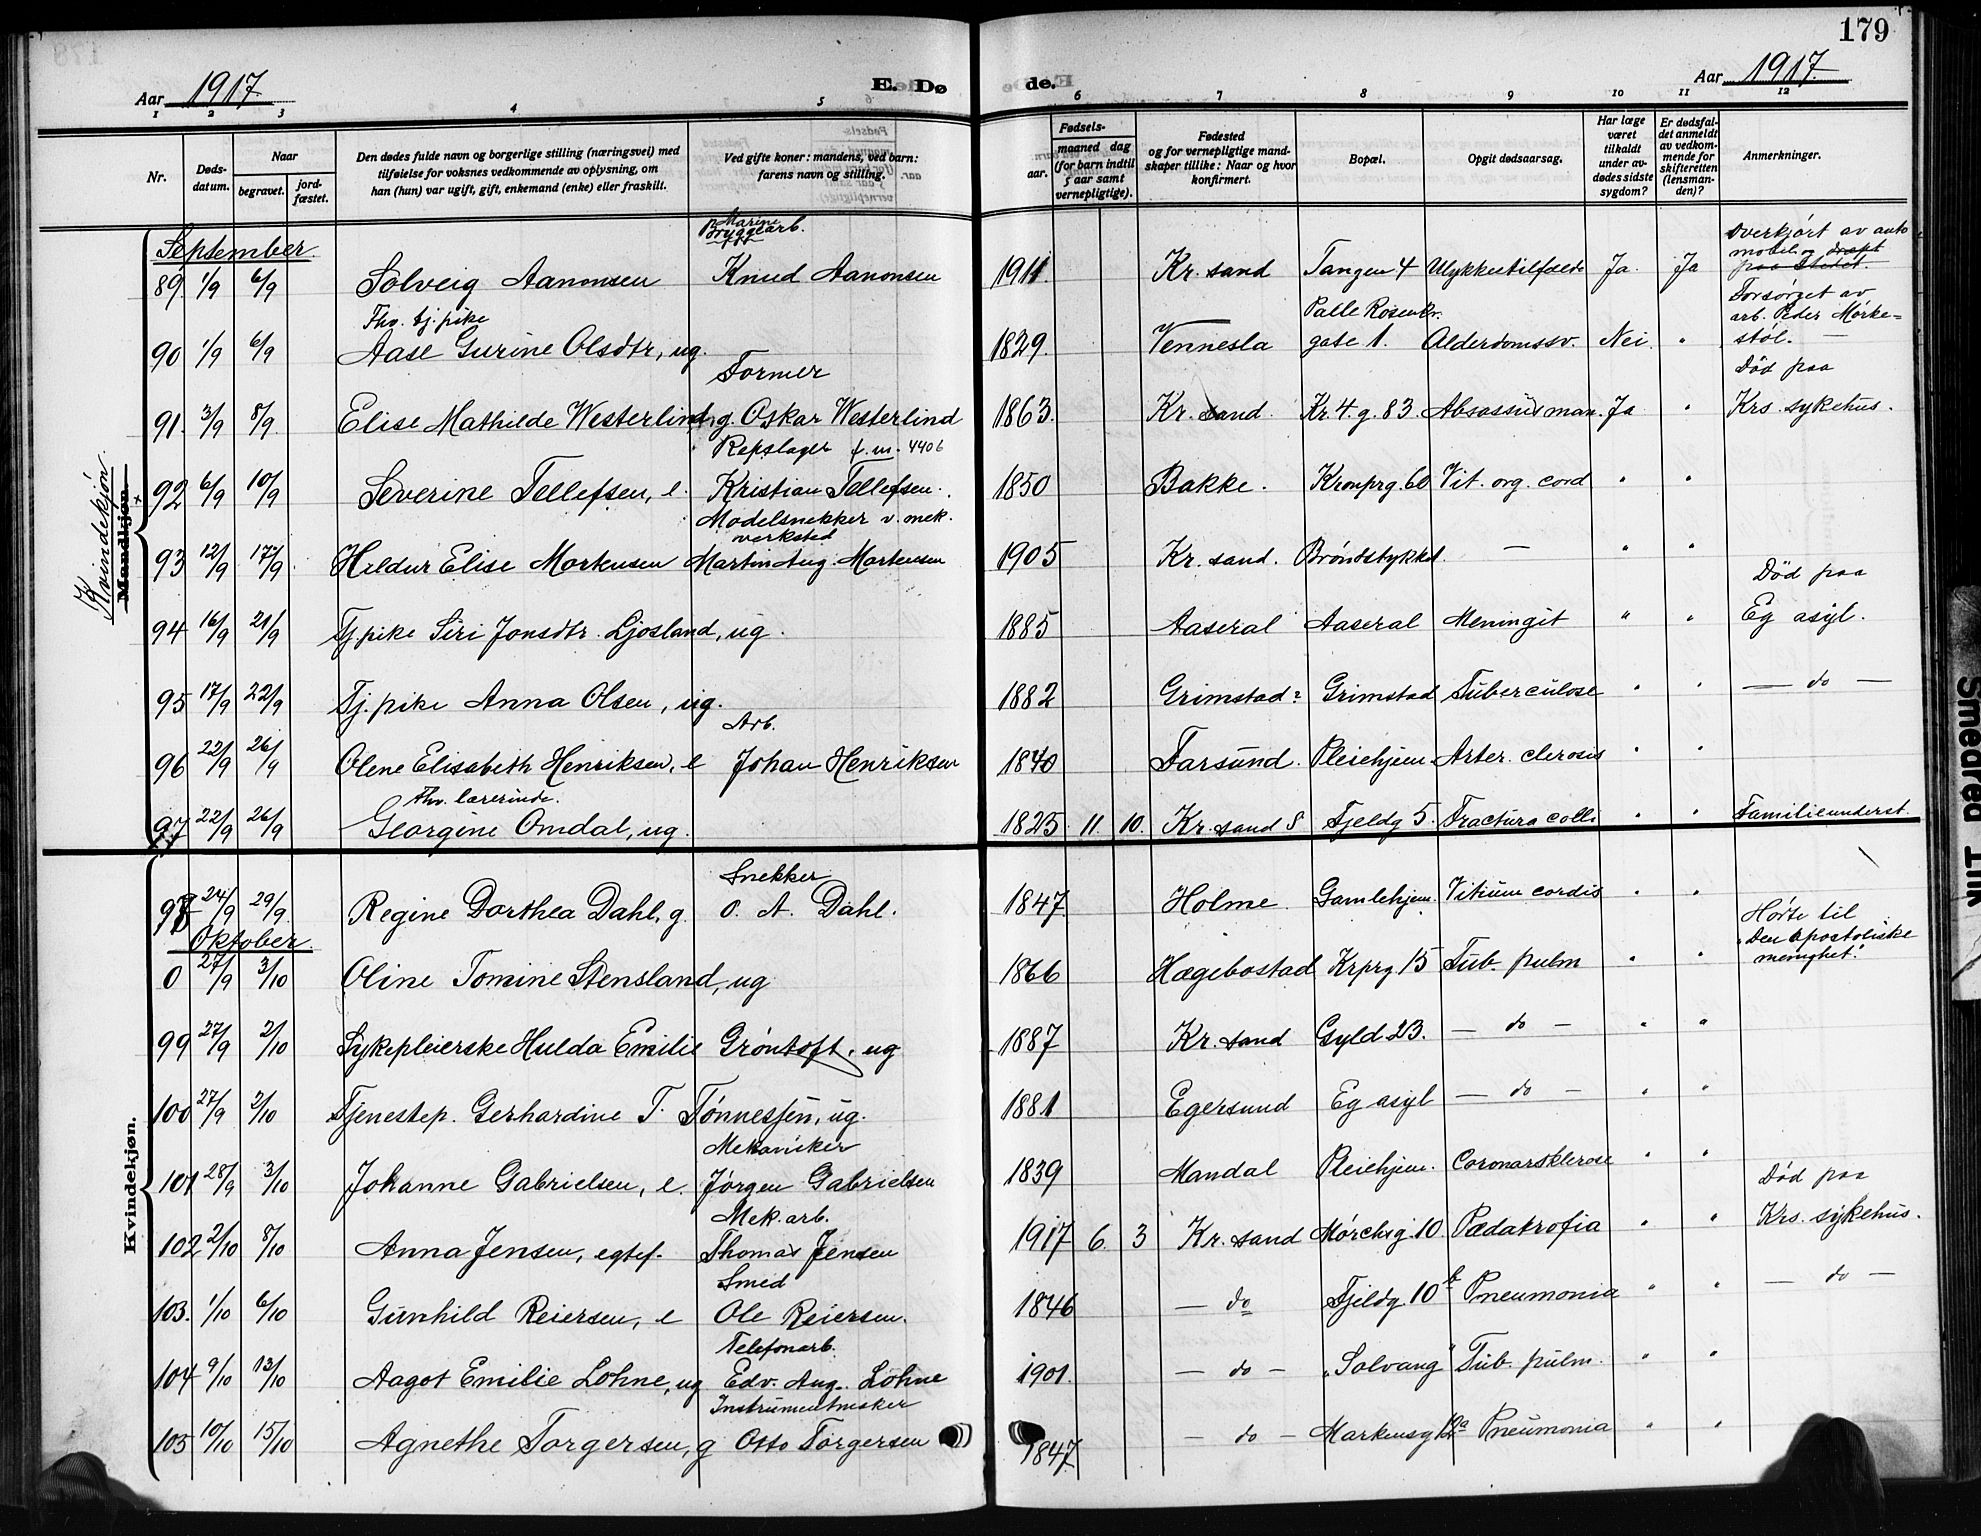 179
Aar 1917.
E. Døde.
Aar 1917.
1 2 3 4 5 6 7 8 9 10 11 12
Nr.
Døds-datum.
Naar
begravet.
jord-fæstet.
Den dødes fulde navn og borgerlige stilling (næringsvei) med
tilføielse for voksnes vedkommende av oplysning, om
han (hun) var ugift, gift, enkemand (enke) eller fraskilt.
Ved gifte koner: mandens, ved barn:
farens navn og stilling.
Fødsels-
aar.
maaned dag
(for barn indtil
5 aar samt
vernepligtige).
Fødested
og for vernepligtige mand-
skaper tillike: Naar og hvor
konfirmert.
Bopæl.
Opgit dødsaarsag.
Har læge
været
tilkaldt
under av-
dødes sidste
sygdom?
Er dødsfal-
det anmeldt
av vedkom-
mende for
skifteretten
(lensman-
den)?
Anmerkninger.
Kvindekjøn.
Mandkjøn.
September.
Marine
Bryggearb.
overkjørt av auto
mobil og dræpt
paa stedet.
89. 1/9 6/9 Solveig Aanonsen Knud Aanonsen 1911 Kr. sand Tangen 4 Ulykkestilfælde Ja. Ja
Fhv. tj. pike Palle Rosenkr. Forsørget av
arb. Peder Mørke=
90 1/9 6/9 Aase Gurine Olsdtr, ug. 1829. Vennesla gate 1. Alderdomssv. Nei. " støl. —
Former Død paa
91. 3/9 8/9. Elise Mathilde Westerlind, g. Oskar Westerlind 1863. Kr. sand. Kr. 4. g. 83 Ja " Krs. sykehus.
Repslager f. m. 4406
92 6/9 10/9 Severine Tellefsen, e. Kristian Tellefsen. 1850 Bakke. Kronprg. 60 Vit. org. cord " "
Modelsnekker v. mek.
verksted
93 12/9 17/9 Hildur Elise Mortensen Martin Aug. Mortensen 1905 Kr. sand. Brøndstykket. — " "
Død paa
94 16/9 21/9 Tj. pike Siri Jonsdtr. Ljosland, ug. 1885 Aaseral Aaseral Meningit " " Eg asyl.
95 17/9 22/9 Tj. pike Anna Olsen, ug. 1882 Grimstad? Grimstad Tuberculose " " — do —
Arb.
96 22/9 26/9 Olene Elisabeth Henriksen, e Johan Henriksen 1840 Farsund. Pleiehjem. Arter. clerosis " "
Fhv. lærerinde.
97 22/9 26/9 Georgine Omdal, ug. 1825 11. 10. Kr. sand S Fjeldg 5. Fractura colli " " Familieunderst.
Kvindekjøn.
Snekker
98 24/9 29/9. Regine Dorthea Dahl, g. O. A. Dahl. 1847. Holme Gamlehjem. Vitium cordis " "
Oktober.
Hørte til
"Den apostoliske
menighet".
0 27/9 3/10 Oline Tomine Stensland, ug 1866 Hægebostad Krprg 15 Tub. pulm " "
99 27/9 2/10 Sykepleierske Hulda Emilie Grøntoft. ug 1887 Kr. sand Gyld. 23. — do — " "
100 27/9 2/10 Tjenestep. Gerhardine T. Tønnessen, ug. 1881 Egersund Eg asyl — do — " "
Mekaniker
101 28/9 3/10 Johanne Gabrielsen, e. Jørgen Gabrielsen 1839 Mandal Pleiehjem. Coronarsklerose " "
Mek. arb. Død paa
102 2/10 8/10 Anna Jensen, egtef. Thomas Jensen 1917 6. 3 Kr. sand Mørchsg. 10. Pædatrofia " " Krs. sykehus.
Smed
103. 1/10 6/10 Gunhild Reiersen, e Ole Reiersen. 1846 — do Fjeldg. 10b Pneumonia " " — do —
Telefonarb.
104 9/10 13/10 Aagot Emilie Lohne, ug Edv. Aug. Lohne 1901. — do — "Solvang" Tub. pulm. " "
Instrumentmaker
105 10/10 15/10 Agnethe Torgersen, g Otto Torgersen 1847. — do — Markensg 12a Pneumonia " "